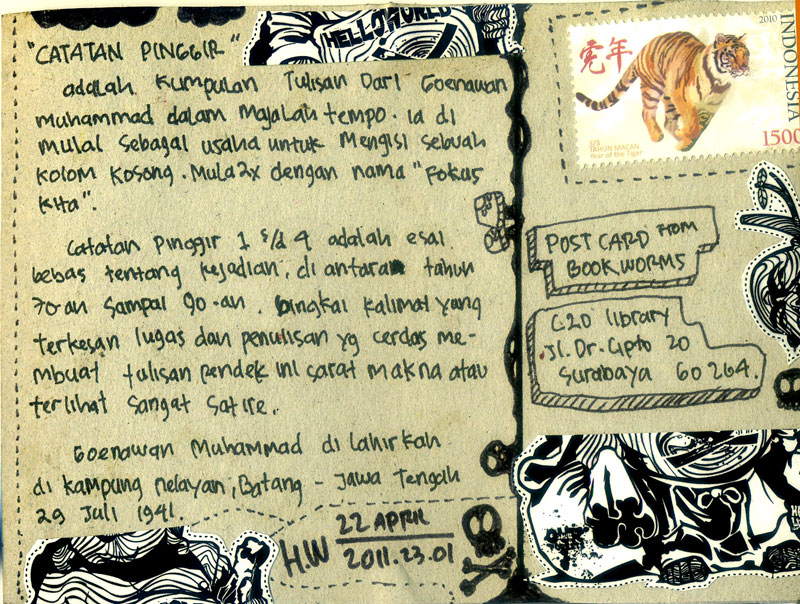 HELLOWORLD
"CATATAN PINGGIR"
adalah Kumpulan Tulisan Dari Goenawan
muhammad dalam Majalah tempo. ia di
mulai sebagai usaha untuk Mengisi sebuah
kolom Kosong. Mula2x dengan nama "Fokus
Kita".
Catatan pinggir 1 s/d 4 adalah esai
bebas tentang kejadian, di antara tahun
70-an sampai 90-an. bingkai kalimat yang
terkesan lugas dan penulisan yg cerdas me-
mbuat tulisan pendek ini sarat makna atau
terlihat sangat satire.
Goenawan Muhammad di lahirkan
di kampung nelayan, Batang - Jawa Tengah
29 Juli 1941
HW 22 APRIL
2011.23.01
2010
INDONESIA
虎年
3/3
TAHUN MACAN
Year of the Tiger
1500
POST CARD FROM
BOOKWORMS
C2O library
Jl. Dr. Cipto 20
Surabaya 60264.